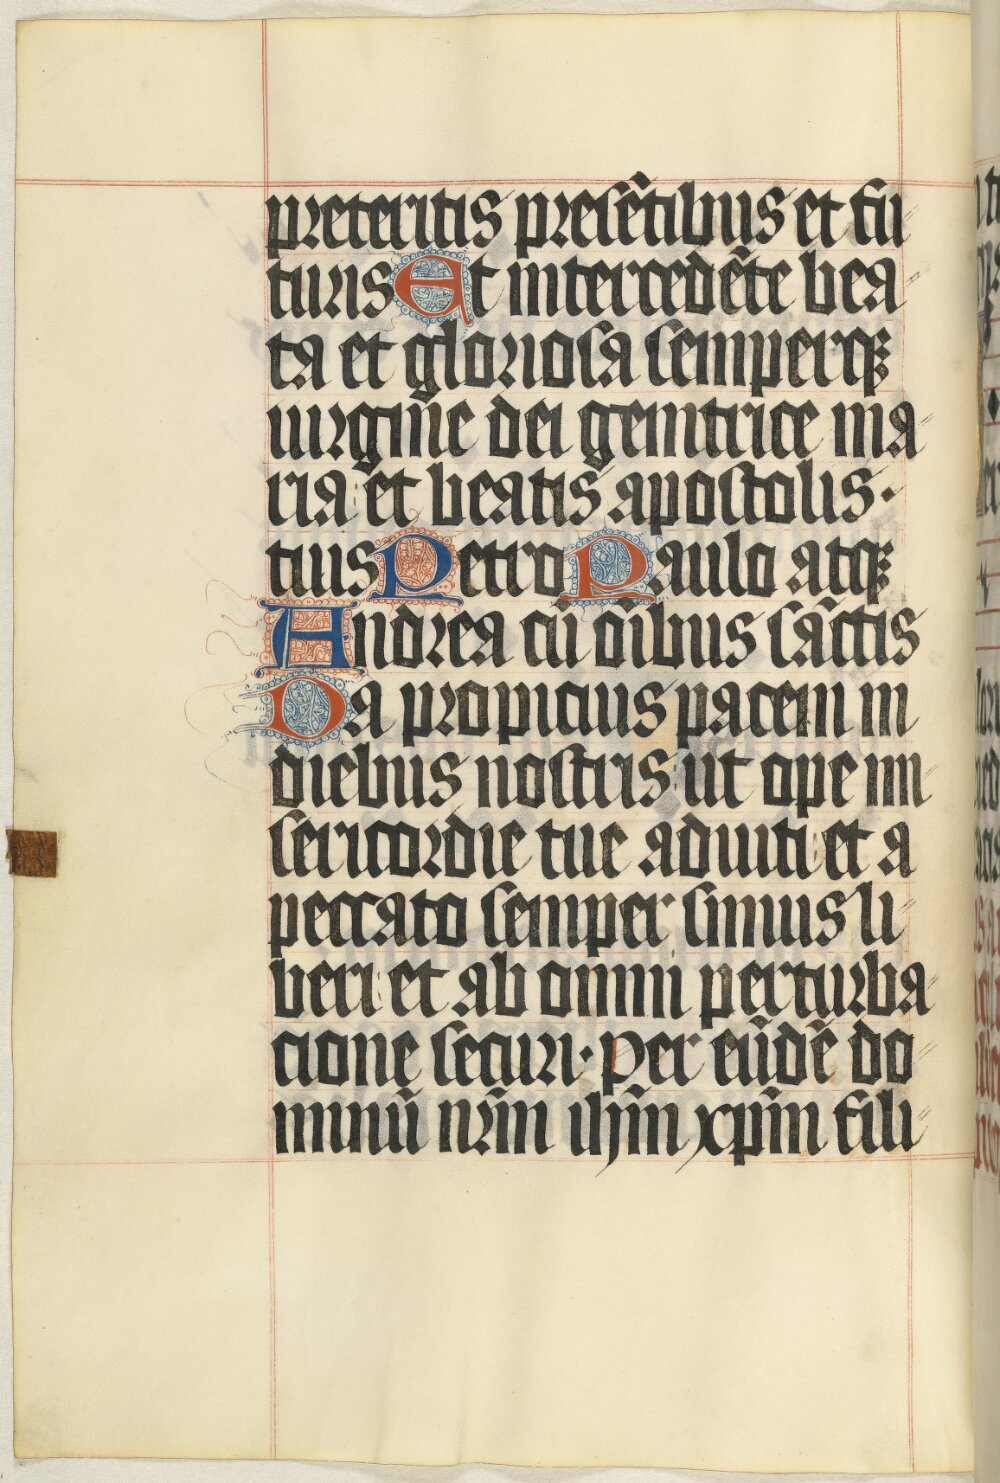 preteritis presẽtibus et fu
turis Et intercedẽte bea
ta et gloriosa semperqꝫ
uirgine dei genitrice ma
ria et beatis apostolis·
tuis Petro Paulo atqꝫ
Andrea cũ oĩbus sãctis
Da propicius pacem in
diebus nostris ut ope mi
sericordie tue adiuti et a
peccato semper simus li
beri et ab omni perturba
cione securi· Per eũdẽ do
minũ nr̃m ihm̃ xpm̃ fili